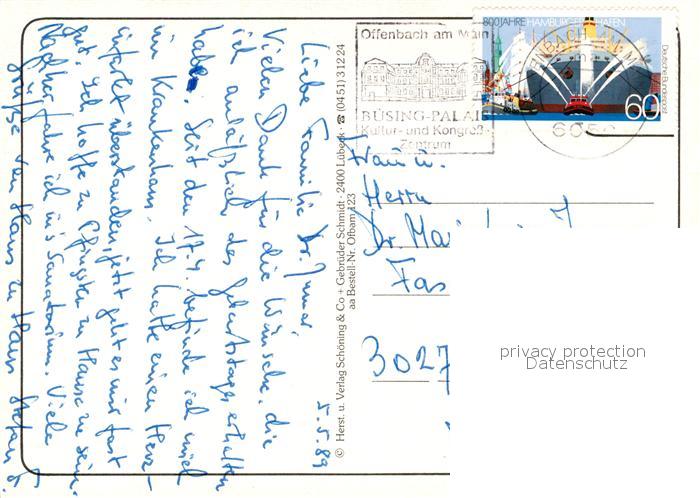 800 JAHRE HAMBURGER HAFEN
Deutsche Bundespost
60
Offenbach am Main
BÜSING-PALAIS
Kultur- und Kongreß-
Zentrum
OFFENBACH AM MAIN
605
5.5.89
Liebe Familie Dr.
Vielen Dank für die Wünsche, die
ich anläßlich des Geburtstages erhalten
habe. Seit den 17.4. befinde ich mich
im Krankenhaus. Ich hatte einen Herz-
infarkt überstanden, jetzt geht es mir fast
gut. Ich hoffe zu Pfingsten zu Hause zu sein.
Nachher fahre ich in's Sanatorium. Viele
Grüße von Haus zu Haus Stefan
© Herst. u. Verlag Schöning & Co + Gebrüder Schmidt · 2400 Lübeck · ☎ (0451) 31224
aa Bestell-Nr. Ofbam 123
Frau u.
Herrn
Dr.
Fas
3027
privacy protection
Datenschutz